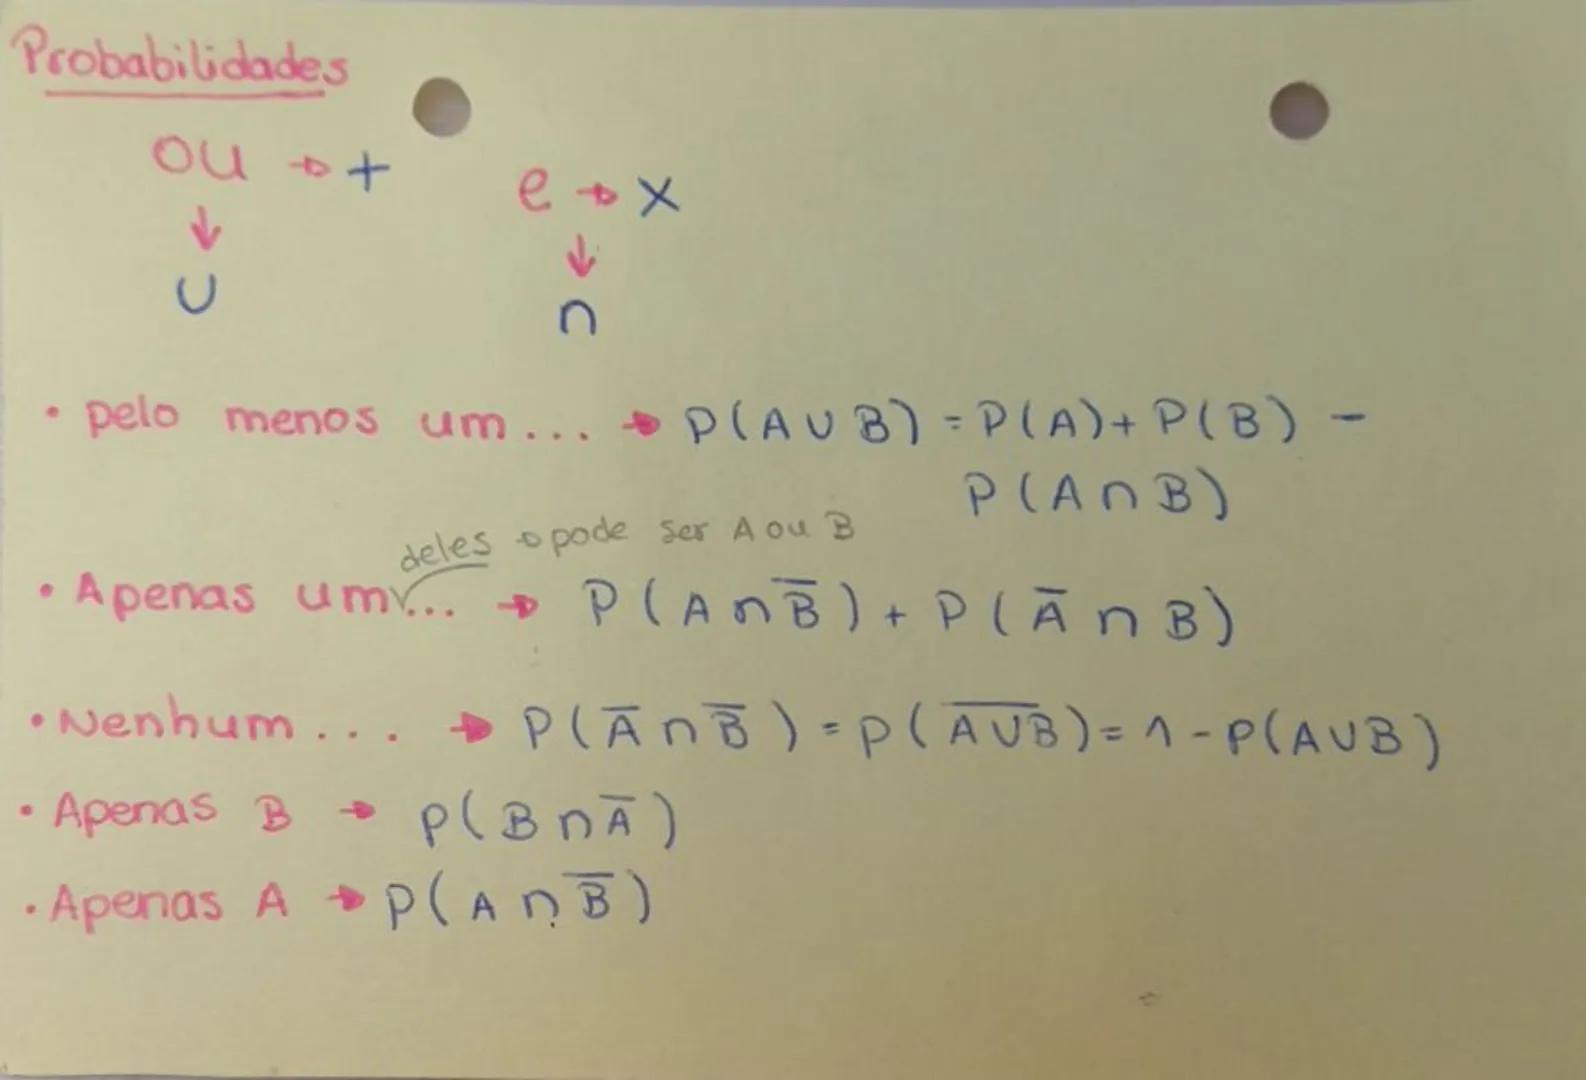 Probabilidades
ou → +
↓
∪
e → x
↓
∩
• pelo menos um... → P(A∪B) = P(A)+ P(B) -
P(A∩B)
deles → pode ser A ou B
• Apenas um... → P(A∩B̅) + P(A̅∩B)
• Nenhum... → P(A̅∩B̅) = P(A̅∪̅B̅) = 1 - P(A∪B)
• Apenas B → P(B∩A̅)
• Apenas A → P(A∩B̅)